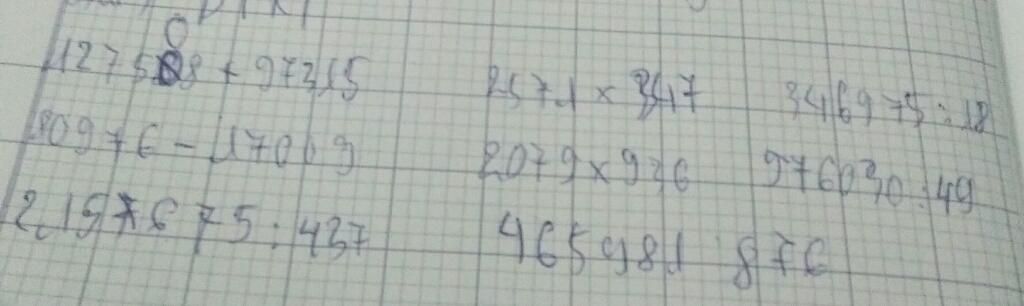 127508 + 97315 2571 x 3417 346975 : 18
80976 - 17019 2079 x 926 976030 : 49
2157675 : 437 465981 : 876